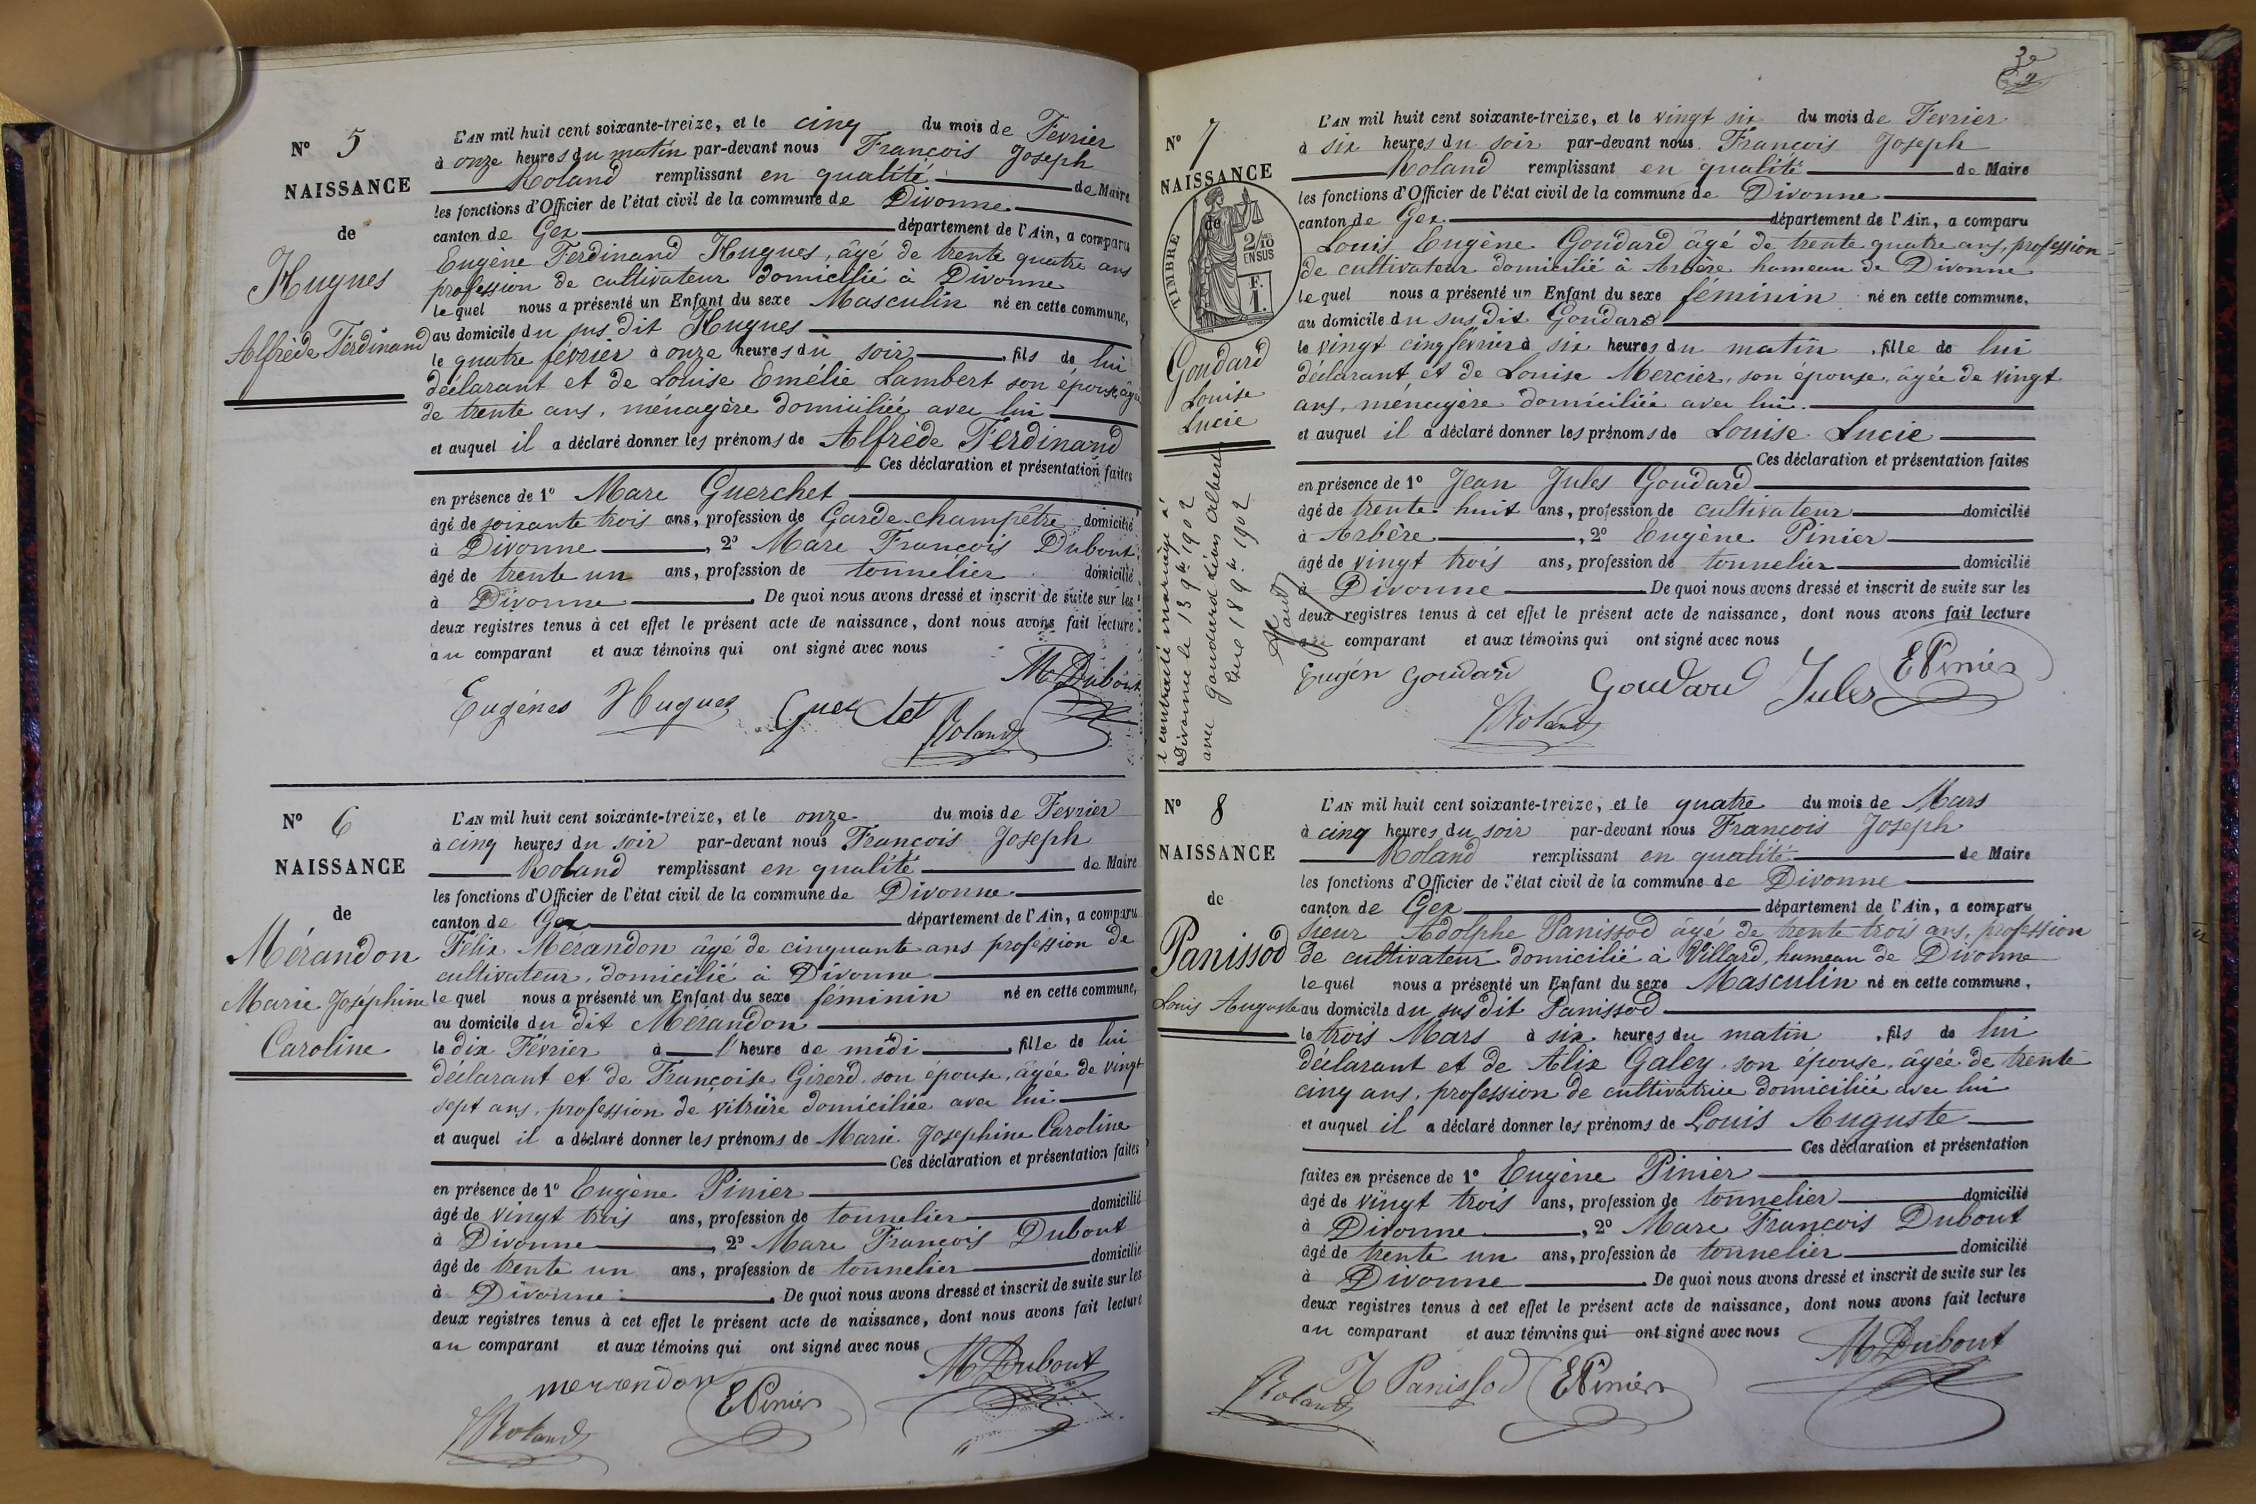 N° 5
NAISSANCE
de
Hugues
Alfrède Ferdinand
L'AN mil huit cent soixante-treize, et le cinq du mois de Fevrier
à onze heures du matin par-devant nous François Joseph
Roland remplissant en qualité de Maire
les fonctions d'Officier de l'état civil de la commune de Divonne
canton de Gex département de l'Ain, a comparu
Eugène Ferdinand Hugues, âgé de trente quatre ans
profession de cultivateur domicilié à Divonne
lequel nous a présenté un Enfant du sexe Masculin né en cette commune,
au domicile du sus dit Hugues
le quatre février à onze heures du soir, fils de lui
déclarant et de Louise Emélie Lambert son épouse, âgée
de trente ans, ménagère domiciliée avec lui
et auquel il a déclaré donner les prénoms de Alfrède Ferdinand
Ces déclaration et présentation faites
en présence de 1° Marc Guerchet
âgé de soixante trois ans, profession de Garde-champêtre domicilié
à Divonne, 2° Marc François Dubout
âgé de trente un ans, profession de tonnelier domicilié
à Divonne. De quoi nous avons dressé et inscrit de suite sur les
deux registres tenus à cet effet le présent acte de naissance, dont nous avons fait lecture
au comparant et aux témoins qui ont signé avec nous
M Dubout
Eugénes Hugues Guerchet
Roland
N° 6
NAISSANCE
de
Mérandon
Marie Joséphine
Caroline
L'AN mil huit cent soixante-treize, et le onze du mois de Fevrier
à cinq heures du soir par-devant nous François Joseph
Roland remplissant en qualité de Maire
les fonctions d'Officier de l'état civil de la commune de Divonne
canton de Gex département de l'Ain, a comparu
Félix Mérandon âgé de cinquante ans profession de
cultivateur, domicilié à Divonne
lequel nous a présenté un Enfant du sexe féminin né en cette commune,
au domicile du dit Mérandon
le dix Février à l'heure de midi, fille de lui
déclarant et de Françoise Girerd son épouse, âgée de vingt
sept ans, profession de vitrière domiciliée avec lui
et auquel il a déclaré donner les prénoms de Marie Josephine Caroline
Ces déclaration et présentation faites
en présence de 1° Eugène Pinier
âgé de vingt trois ans, profession de tonnelier domicilié
à Divonne, 2° Marc François Dubout
âgé de trente un ans, profession de tonnelier domicilié
à Divonne. De quoi nous avons dressé et inscrit de suite sur les
deux registres tenus à cet effet le présent acte de naissance, dont nous avons fait lecture
au comparant et aux témoins qui ont signé avec nous
M Dubout
merandon E Pinier
Roland
N° 7
NAISSANCE
de
TIMBRE
2/10
EN SUS
F.
1.
Goudard
Louise
Lucie
contracté mariage à
Divonne le 15 9bre 1902
avec Goudard Léon Albert
Gex 18 9bre 1902
L'AN mil huit cent soixante-treize, et le vingt six du mois de Fevrier
à six heures du soir par-devant nous François Joseph
Roland remplissant en qualité de Maire
les fonctions d'Officier de l'état civil de la commune de Divonne
canton de Gex département de l'Ain, a comparu
Louis Eugène Goudard âgé de trente quatre ans, profession
de cultivateur domicilié à Arbère hameau de Divonne
lequel nous a présenté un Enfant du sexe féminin né en cette commune,
au domicile du susdit Goudard
le vingt cinq février à six heures du matin, fille de lui
déclarant, et de Louise Mercier, son épouse, âgée de vingt
ans, ménagère domiciliée avec lui.
et auquel il a déclaré donner les prénoms de Louise Lucie
Ces déclaration et présentation faites
en présence de 1° Jean Jules Goudard
âgé de trente huit ans, profession de cultivateur domicilié
à Arbère, 2° Eugène Pinier
âgé de vingt trois ans, profession de tonnelier domicilié
à Divonne. De quoi nous avons dressé et inscrit de suite sur les
deux registres tenus à cet effet le présent acte de naissance, dont nous avons fait lecture
au comparant et aux témoins qui ont signé avec nous
Eugén Goudard Goudard Jules E Pinier
Roland
N° 8
NAISSANCE
de
Panissod
Louis Auguste
L'AN mil huit cent soixante-treize, et le quatre du mois de Mars
à cinq heures du soir par-devant nous François Joseph
Roland remplissant en qualité de Maire
les fonctions d'Officier de l'état civil de la commune de Divonne
canton de Gex département de l'Ain, a comparu
Sieur Adolphe Panissod âgé de trente trois ans, profession
de cultivateur domicilié à Villard, hameau de Divonne
lequel nous a présenté un Enfant du sexe Masculin né en cette commune,
au domicile du susdit Panissod
le trois Mars à six heures du matin, fils de lui
déclarant et de Alix Galey son épouse, âgée de trente
cinq ans, profession de cultivatrice domiciliée avec lui
et auquel il a déclaré donner les prénoms de Louis Auguste
Ces déclaration et présentation
faites en présence de 1° Eugène Pinier
âgé de vingt trois ans, profession de tonnelier domicilié
à Divonne, 2° Marc François Dubout
âgé de trente un ans, profession de tonnelier domicilié
à Divonne. De quoi nous avons dressé et inscrit de suite sur les
deux registres tenus à cet effet le présent acte de naissance, dont nous avons fait lecture
au comparant et aux témoins qui ont signé avec nous
M Dubout
Roland Panissod E Pinier